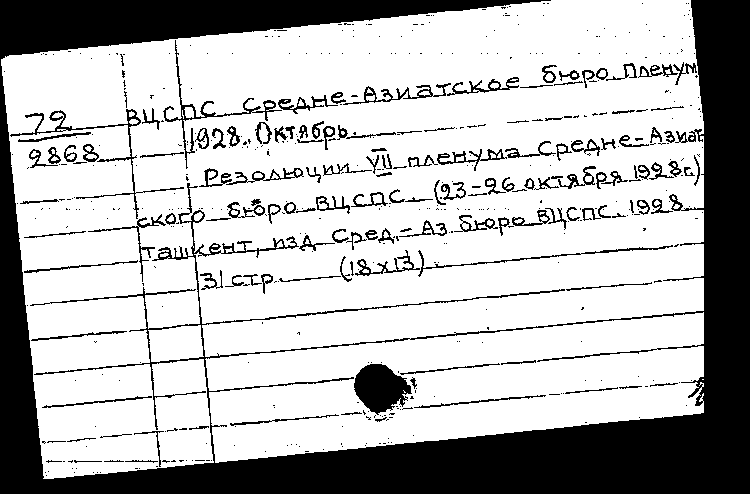 72
9868
ВЦСПС Средне-Азиатское бюро. Пленум
1928. Октябрь.
Резолюции VII пленума Средне-Азиат-
ского бюро ВЦСПС. (23-26 октября 1928г.)
Ташкент, изд. Сред.-Аз. бюро ВЦСПС. 1928.
31 стр. (18 x 13).